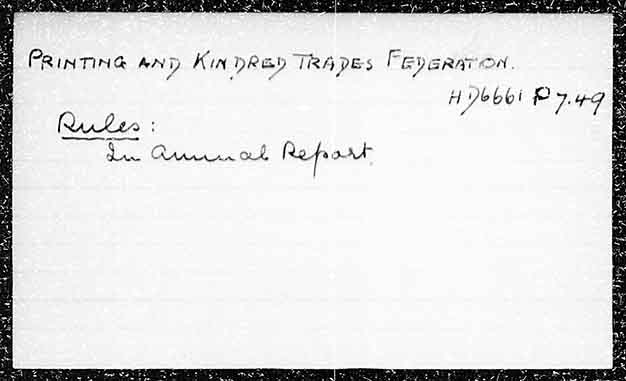 PRINTING AND KINDRED TRADES FEDERATION.
HD6661 P7.49
Rules:
In Annual Report.